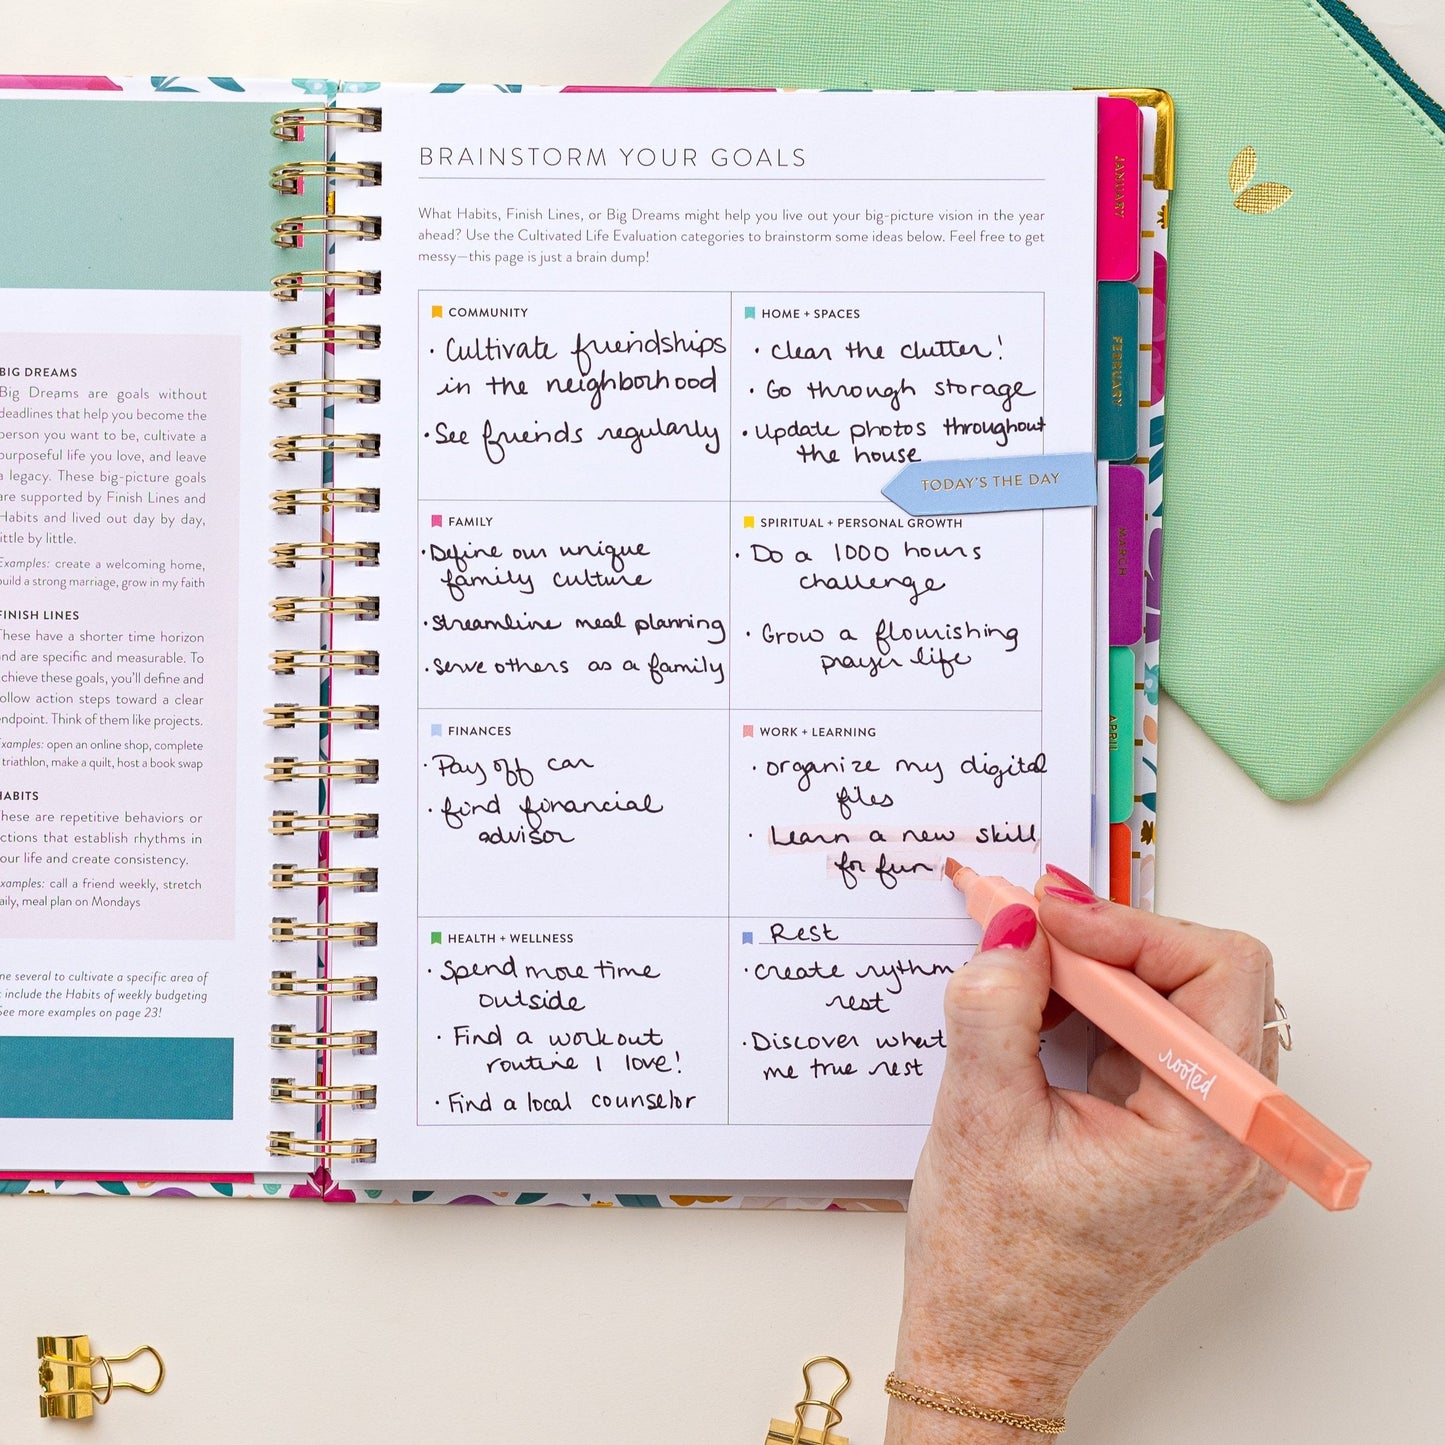 BIG DREAMS
Big Dreams are goals without
deadlines that help you become the
person you want to be, cultivate a
purposeful life you love, and leave
a legacy. These big-picture goals
are supported by Finish Lines and
Habits and lived out day by day,
little by little.
Examples: create a welcoming home,
build a strong marriage, grow in my faith
FINISH LINES
These have a shorter time horizon
and are specific and measurable. To
achieve these goals, you'll define and
follow action steps toward a clear
endpoint. Think of them like projects.
Examples: open an online shop, complete
triathlon, make a quilt, host a book swap
HABITS
These are repetitive behaviors or
actions that establish rhythms in
your life and create consistency.
Examples: call a friend weekly, stretch
daily, meal plan on Mondays
several to cultivate a specific area of
include the Habits of weekly budgeting
See more examples on page 23!
BRAINSTORM YOUR GOALS
What Habits, Finish Lines, or Big Dreams might help you live out your big-picture vision in the year
ahead? Use the Cultivated Life Evaluation categories to brainstorm some ideas below. Feel free to get
messy—this page is just a brain dump!
COMMUNITY
· Cultivate friendships
in the neighborhood
· See friends regularly
HOME + SPACES
· Clean the clutter!
· Go through storage
· Update photos throughout
the house
TODAY'S THE DAY
FAMILY
· Define our unique
family culture
· Streamline meal planning
· Serve others as a family
SPIRITUAL + PERSONAL GROWTH
· Do a 1000 hours
challenge
· Grow a flourishing
prayer life
FINANCES
· Pay off car
· find financial
advisor
WORK + LEARNING
· organize my digital
files
· Learn a new skill
for fun
HEALTH + WELLNESS
· Spend more time
outside
· Find a workout
routine I love!
· Find a local counselor
Rest
· create rythm
rest
· Discover what
me true rest
JANUARY
FEBRUARY
MARCH
APRIL
rooted